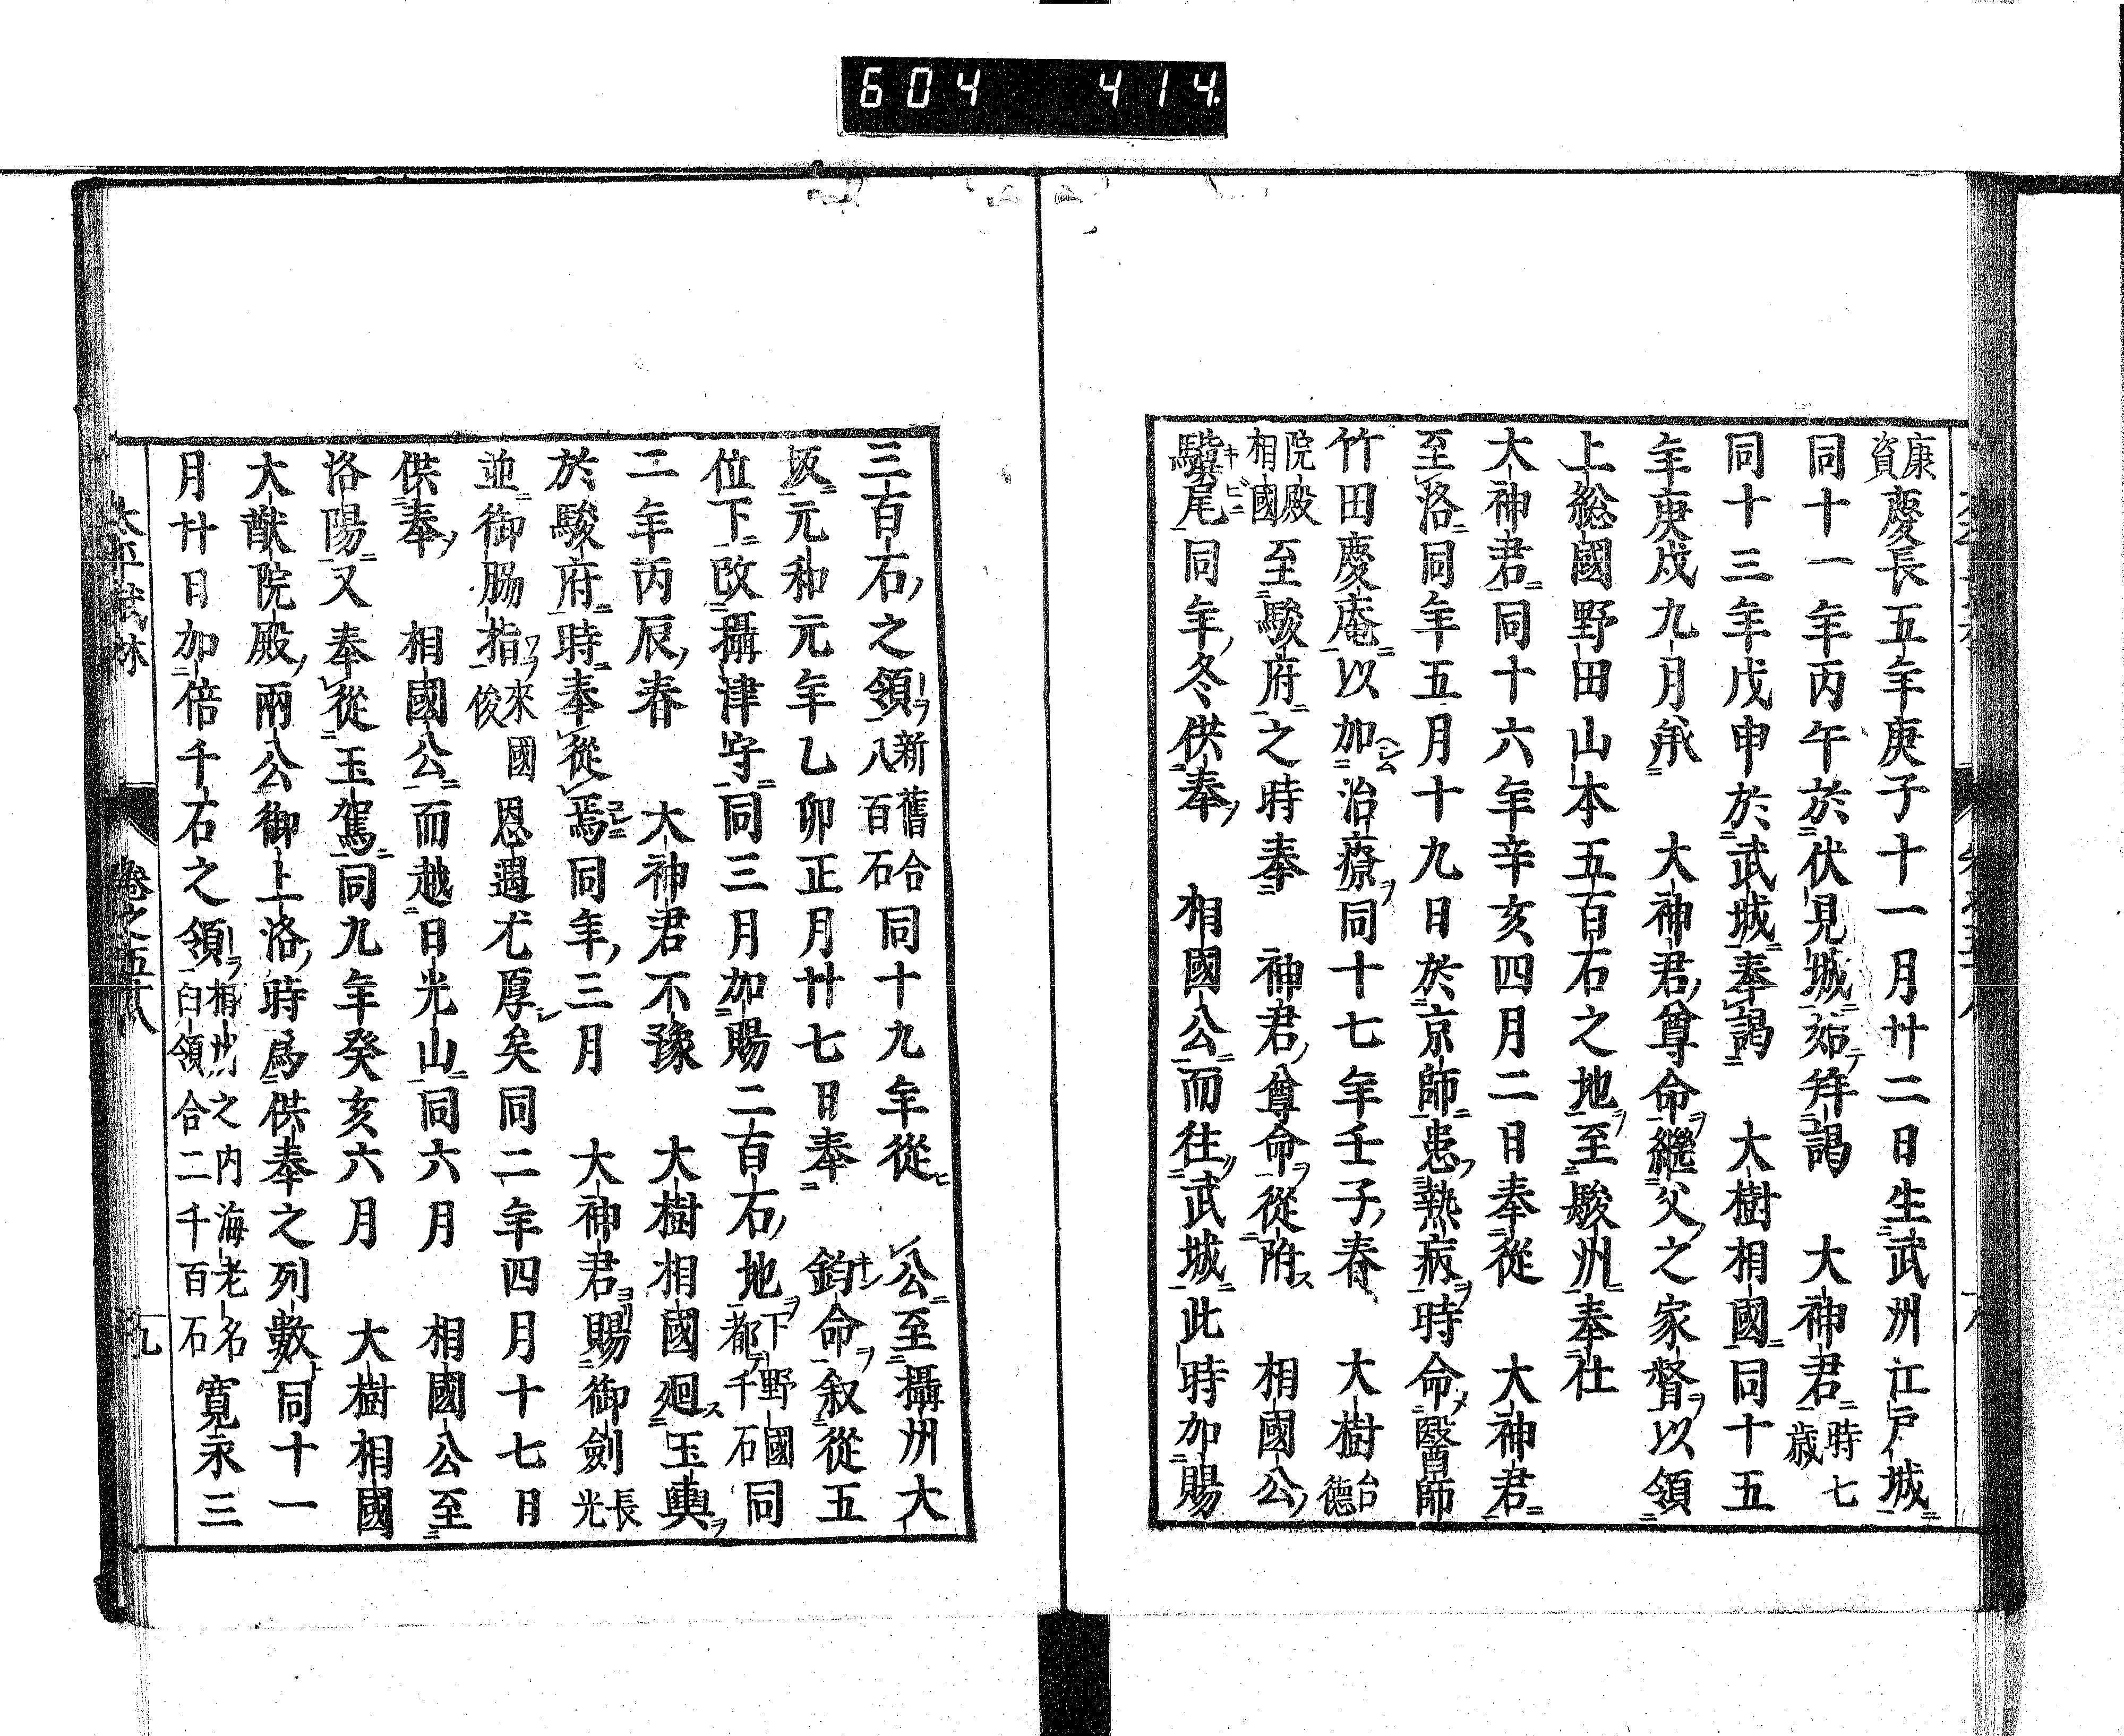 604 414
康資慶長五年庚子十一月廿二日生武州江戸城
同十一年丙午於伏見城始拜謁 大神君時七歳
同十三年戊申於武城奉謁 大樹相國同十五
年庚戌九月承 大神君尊命繼父之家督以領
上総國野田山本五百石之地至駿州奉仕
大神君同十六年辛亥四月二日奉從 大神君
至洛同年五月十九日於京師患熱病時命醫師
竹田慶庵以加治療同十七年壬子春 大樹台德
院殿相國至駿府之時奉 神君尊命從附 相國公
驥尾同年冬供奉 相國公而往武城此時加賜
三百石之領新舊合八百石同十九年從 公至攝州大
坂元和元年乙卯正月廿七日奉 鈞命叙從五
位下改攝津守同三月加賜二百石地下野國都千石同
二年丙辰春 大神君不豫 大樹相國廻玉輿
於駿府時奉從焉同年三月 大神君賜御劍長光
並御脇指來國俊 恩遇尤厚矣同二年四月十七日
供奉 相國公而越日光山同六月 相國公至
洛陽又奉從玉駕同九年癸亥六月 大樹相國
大猷院殿兩公御上洛時爲供奉之列數同十一
月廿日加倍千石之領相州之内海老名臼領合二千百石寛永三
太平武林 卷之五十八 九